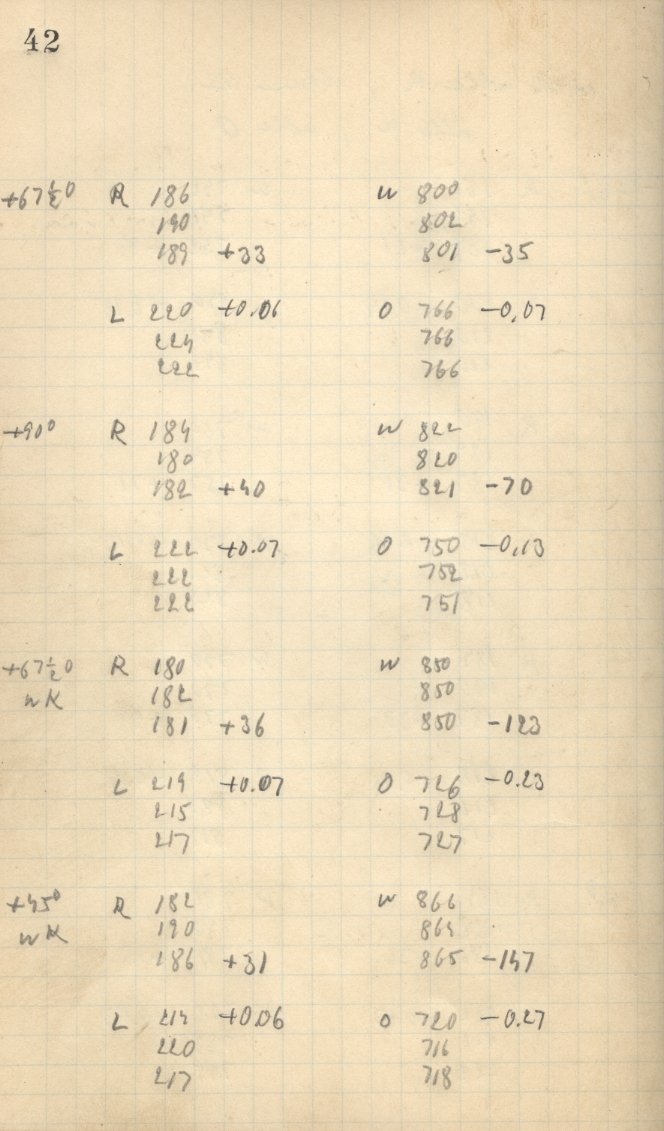 42
+67½° R 186 W 800
190 802
189 +33 801 -35
L 220 +0.06 O 766 -0,07
224 766
222 766
+90° R 184 W 822
180 820
182 +40 821 -70
L 222 +0.07 O 750 -0,13
222 752
222 751
+67½° R 180 W 850
nK 182 850
181 +36 850 -123
L 219 +0.07 O 726 -0.23
215 728
217 727
+45° R 182 W 866
nK 190 864
186 +31 865 -147
L 214 +0.06 O 720 -0.27
220 716
217 718